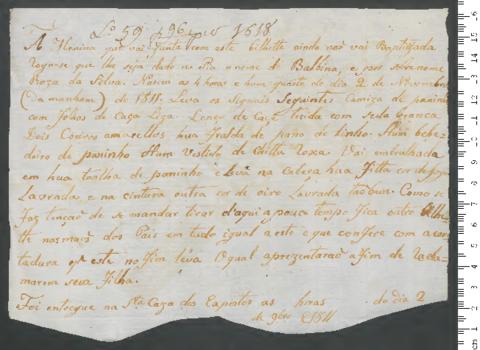 Lº 59 f 96
A Menina que vai junta com este bilhete ainda não vai Baptizada
Rogase que lhe seja dado na Pia o nome de Balbina, e por Sobrenome
Roza da Silva. Nasceu as 4 horas e hum quarto do dia 2 de Novembro
(Da manham) de 1811. Leva os Siguais Seguintes Camiza de paninho
com folhos de Caça Liza. Lenço de Caça com seda branca
Dois Coeiros amarellos hua Fralda de pano de linho. Hum bebe-
doiro de paninho Hum Vestido de Chitta Roxa. Vai embrulhada
em hua toalha de paninho e leva na Cabeça hua Fitta cor de
Lavrada e na cintura outra cor de oiro Lavrada Como se
faz tenção de se mandar tirar d'aqui a pouco tempo fica outro Bilhe-
te nas maos dos Pais em tudo igual a este e que confere com a cor-
tadura q este no Fim leva O qual aprezentarão a fim de Recla-
marem seua Filha.
Foi entregue na Sta Caza dos Expostos as horas do dia 2
de 9bro 1811